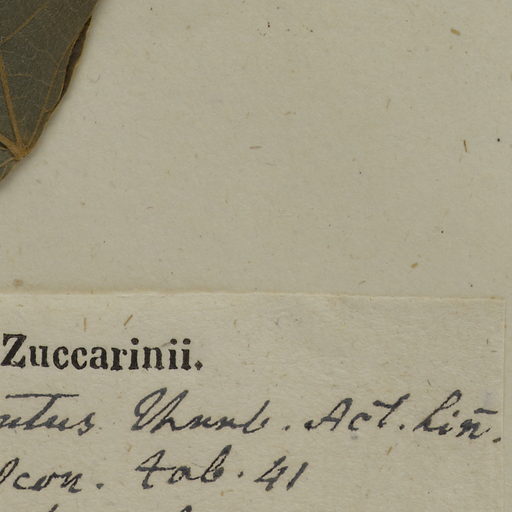 Zuccarinii.
Thunb. Act. Lin̄.
Icon. tab. 41